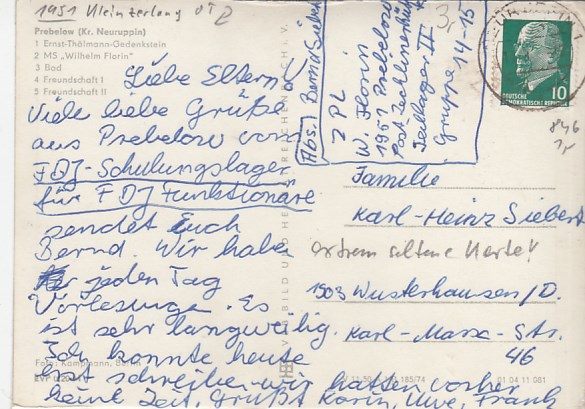 1951 Kleinzerlang OT Z
Prebelow (Kr. Neuruppin)
1 Ernst-Thälmann-Gedenkstein
2 MS „Wilhelm Florin"
3 Bad
4 Freundschaft I
5 Freundschaft II
Liebe Eltern!
Viele liebe Grüße
aus Prebelow vom
FDJ-Schulungslager
für FDJ Funktionäre
sendet Euch
Bernd. Wir habe
jeden Tag
Vorlesunge. Es
ist sehr langweilig.
Ich konnte heute
erst schreibe wir hatten vorher
keine Zeit. Grüßt Karin, Uwe, Frank
Foto: Kampmann, Berlin
Abs. Bernd Siebert
ZPL
W. Florin
1951 Prebelow
Post Zechlinerhütte
Teillager II
Gruppe 14-15
3,-
DEUTSCHE
DEMOKRATISCHE REPUBLIK
10
846
Familie
Karl-Heinz Siebert
extrem seltene Karte!
1903 Wusterhausen/D.
Karl-Marx-Str.
46
185/74
01 04 11 081